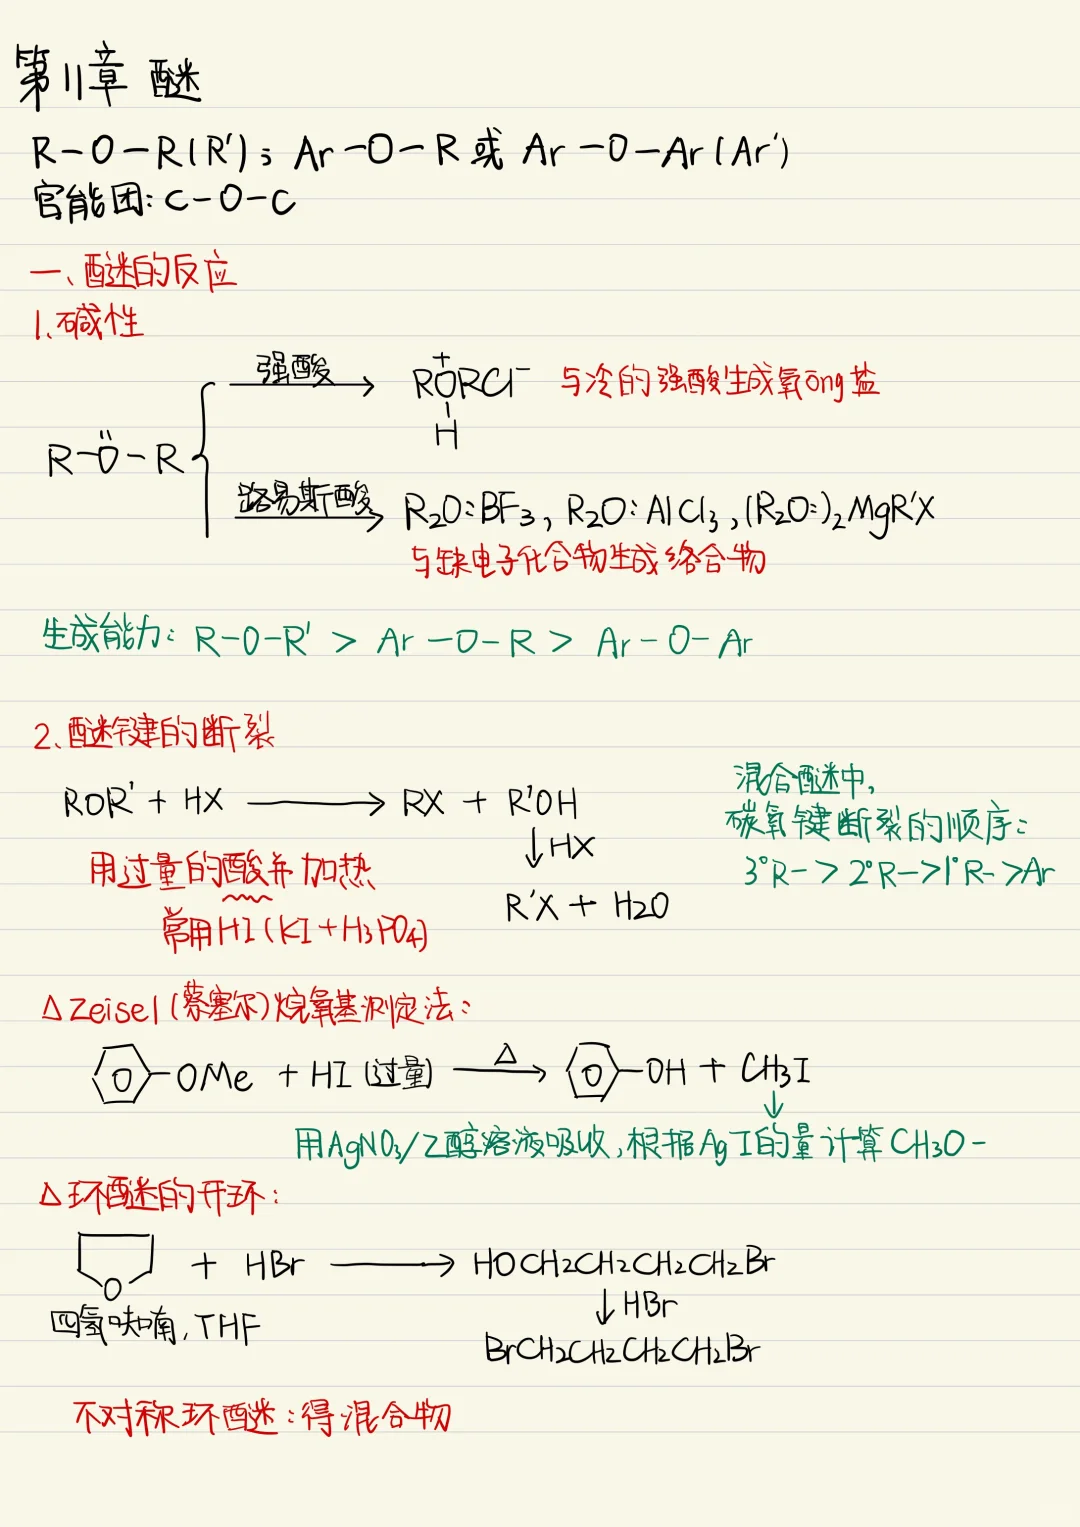 第11章 醚
R-O-R(R'); Ar-O-R或 Ar-O-Ar(Ar')
官能团: C-O-C
一、醚的反应
1.碱性
R-Ö-R
强酸
R⁺ORCl⁻
H
与冷的强酸生成氧ōng盐
路易斯酸
R2O:BF3, R2O:AlCl3, (R2O:)2MgR'X
与缺电子化合物生成络合物
生成能力: R-O-R' > Ar-O-R > Ar-O-Ar
2.醚键的断裂
ROR' + HX → RX + R'OH
↓HX
R'X + H2O
用过量的酸并加热
常用HI(KI+H3PO4)
混合醚中,
碳氧键断裂的顺序:
3°R->2°R->1°R->Ar
△Zeisel(蔡塞尔)烷氧基测定法:
-OMe + HI (过量) △→ -OH + CH3I
↓
用AgNO3/乙醇溶液吸收,根据AgI的量计算CH3O-
△环醚的开环:
O + HBr → HOCH2CH2CH2CH2Br
四氢呋喃,THF
↓HBr
BrCH2CH2CH2CH2Br
不对称环醚:得混合物